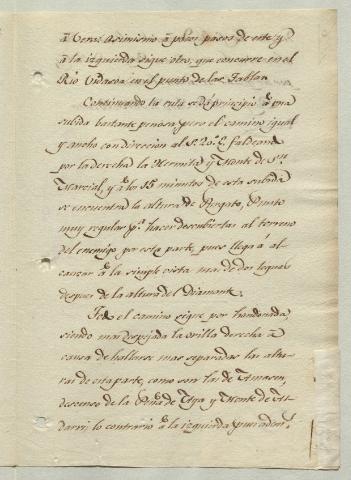 á Vera: Asimismo á pocos pasos de este y
á la izquierda sigue otro, que concurre en el
Rio Vidasoa en el punto de las Tablas.
Continuando la ruta se dá principio á una
subida bastante penosa, pero el camino igual
y ancho con direccion al S. 20º E. faldeando
por la derecha la Hermita y Monte de Sn.
Marcial, y á los 15 minutos de esta subida
se encuentra la altura de Punto
muy regular pa. hacer descubiertas al terreno
del enemigo por esta parte, pues llega á al-
canzar á la simple vista mas de dos leguas
despues de la altura del Diamante.
el camino sigue por hondonada
siendo mas despejada la orilla derecha á
causa de hallarse mas separadas las altu-
ras de esta parte, como son las de
descenso de la Peña de Aya y Monte de
lo contrario á la izquierda pues ademas